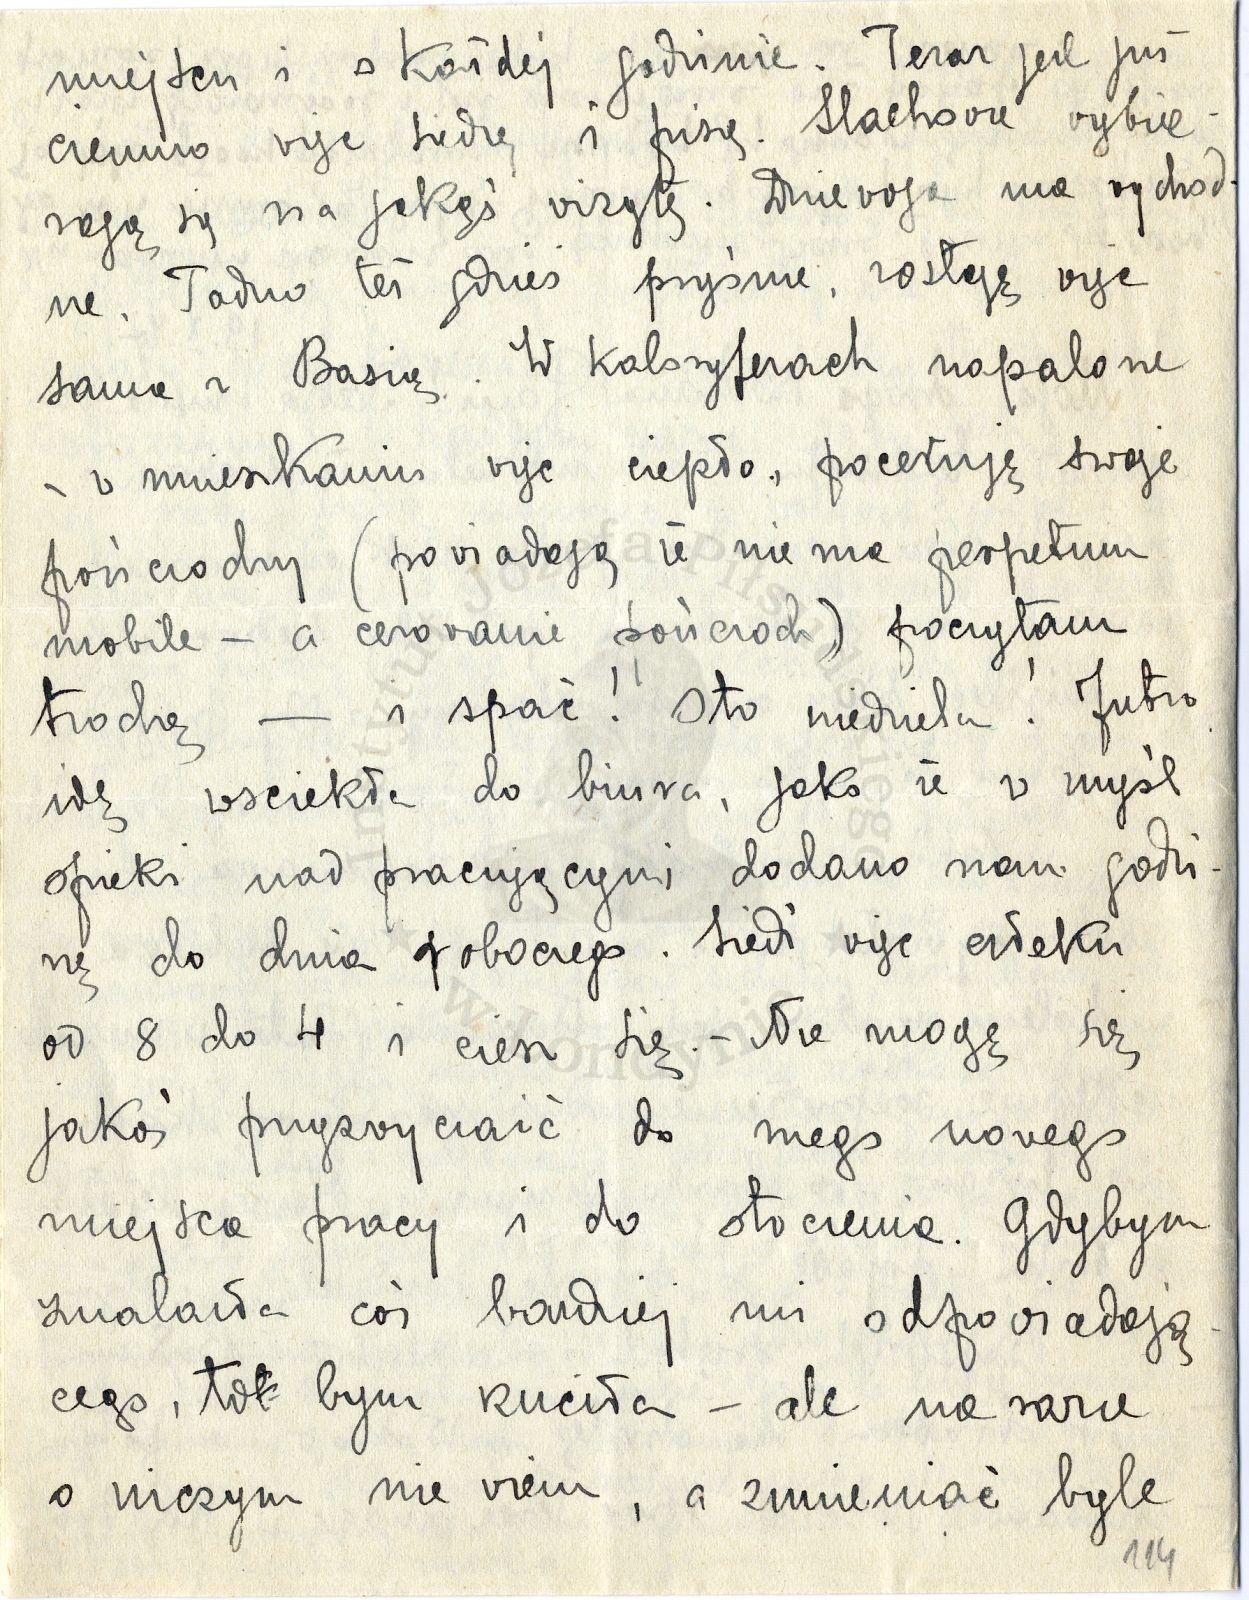 miejscu i o każdej godzinie. Teraz jest już
ciemno więc siedzę i piszę. Stachowie wybie-
rają się na jakąś wizytę. Dniewoja ma wychod-
ne. Tadno też gdzieś pryśnie, zostaję więc
sama z Basią. W kaloryferach napalone
- w mieszkaniu więc ciepło, poceruję swoje
pończochy (powiadają że nie ma perpetum
mobile - a cerowanie pończoch) poczytam
trochę — i spać!! Oto niedziela! Jutro
idę wściekła do biura, jako że w myśl
opieki nad pracującymi dodano nam godzi-
nę do dnia roboczego. Siedź więc człeku
od 8 do 4 i ciesz się. - Nie mogę się
jakoś przyzwyczaić do mego nowego
miejsca pracy i do otoczenia. Gdybym
znalazła coś bardziej mi odpowiadają-
cego, tak bym rzuciła - ale na razie
o niczym nie wiem, a zmieniać byle
114
Instytut Józefa Piłsudskiego
w Londynie